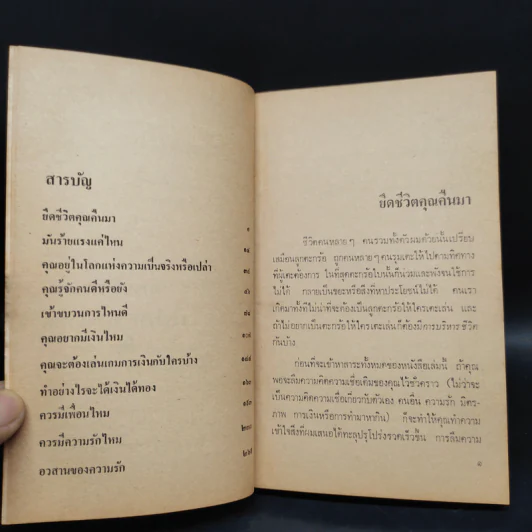 สารบัญ
ยึดชีวิตคุณคืนมา ๑
มันร้ายแรงแค่ไหน
คุณอยู่ในโลกแห่งความเป็นจริงหรือเปล่า
คุณรู้จักคนดีหรือยัง
เข้าขบวนการไหนดี
คุณอยากมีเงินไหม
คุณจะต้องเล่นเกมการเงินกับใครบ้าง
ทำอย่างไรจะได้เงินได้ทอง
ควรมีเพื่อนไหม
ควรมีความรักไหม
อวสานของความรัก
ยึดชีวิตคุณคืนมา
ชีวิตคนหลายๆ คนรวมทั้งตัวผมด้วยนั้นเปรียบ
เสมือนลูกตะกร้อ ถูกคนหลายๆ คนรุมเตะให้ไปตามทิศทาง
ที่ผู้เตะต้องการ ในที่สุดตะกร้อใบนั้นก็บวมและพังจนใช้การ
ไม่ได้ กลายเป็นขยะหรือสิ่งที่หาประโยชน์ไม่ได้ คนเรา
เกิดมาทั้งทีไม่น่าที่จะต้องเป็นลูกตะกร้อให้ใครเตะเล่น และ
ถ้าไม่อยากเป็นตะกร้อให้ใครเตะเล่นก็ต้องมีการบริหารชีวิต
กันบ้าง
ก่อนที่จะเข้าหาสาระทั้งหมดของหนังสือเล่มนี้ ถ้าคุณ
พอจะลืมความคิดความเชื่อเดิมของคุณไว้ชั่วคราว (ไม่ว่าจะ
เป็นความคิดความเชื่อเกี่ยวกับตัวเอง คนอื่น ความรัก มิตร-
ภาพ การเงินหรือการทำมาหากิน) ก็จะทำให้คุณทำความ
เข้าใจสิ่งที่ผมเสนอได้ทะลุปรุโปร่งรวดเร็วขึ้น การลืมความ